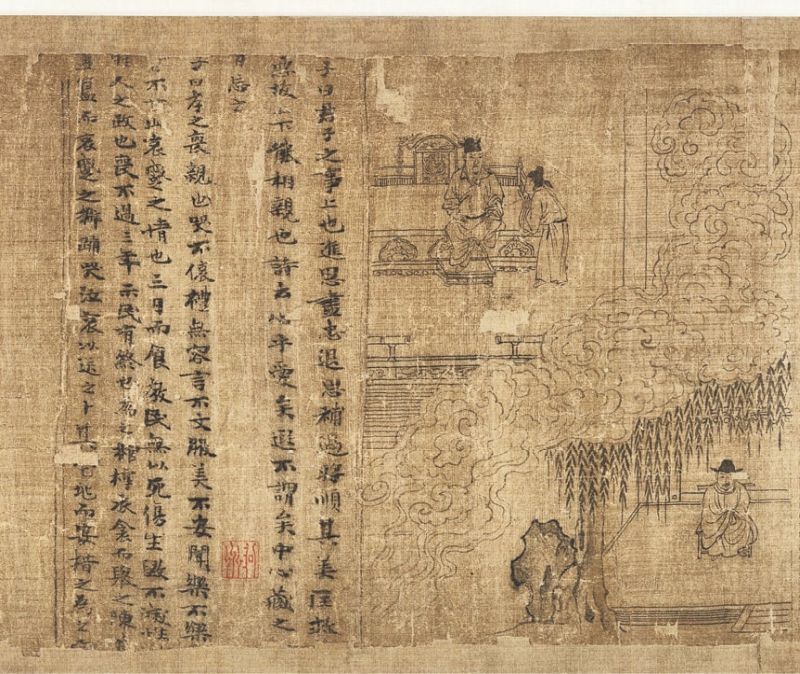 子曰君子之事上也進思盡忠退思補過將順其美匡救
惡故上下能相親也詩云心乎愛矣遐不謂矣中心藏之
日忘之
子曰孝之喪親也哭不偯禮無容言不文服美不安聞樂不樂
不甘此哀慼之情也三日而食教民無以死傷生毀不滅性
聖人之政也喪不過三年示民有終也為之棺槨衣衾而舉之陳其
簠簋而哀慼之擗踊哭泣哀以送之卜其宅而安措之為之